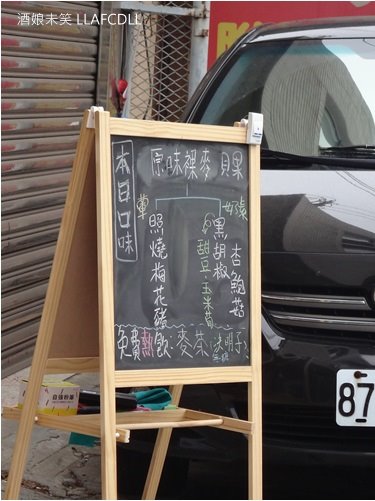 酒娘未笑 LLAFCDLL
本日口味
原味裸麥貝果
葷
好素
照燒梅花豬
黑胡椒
甜豆.玉米荀
杏鮑菇
免費熱飲:麥茶.決明子
無糖
87